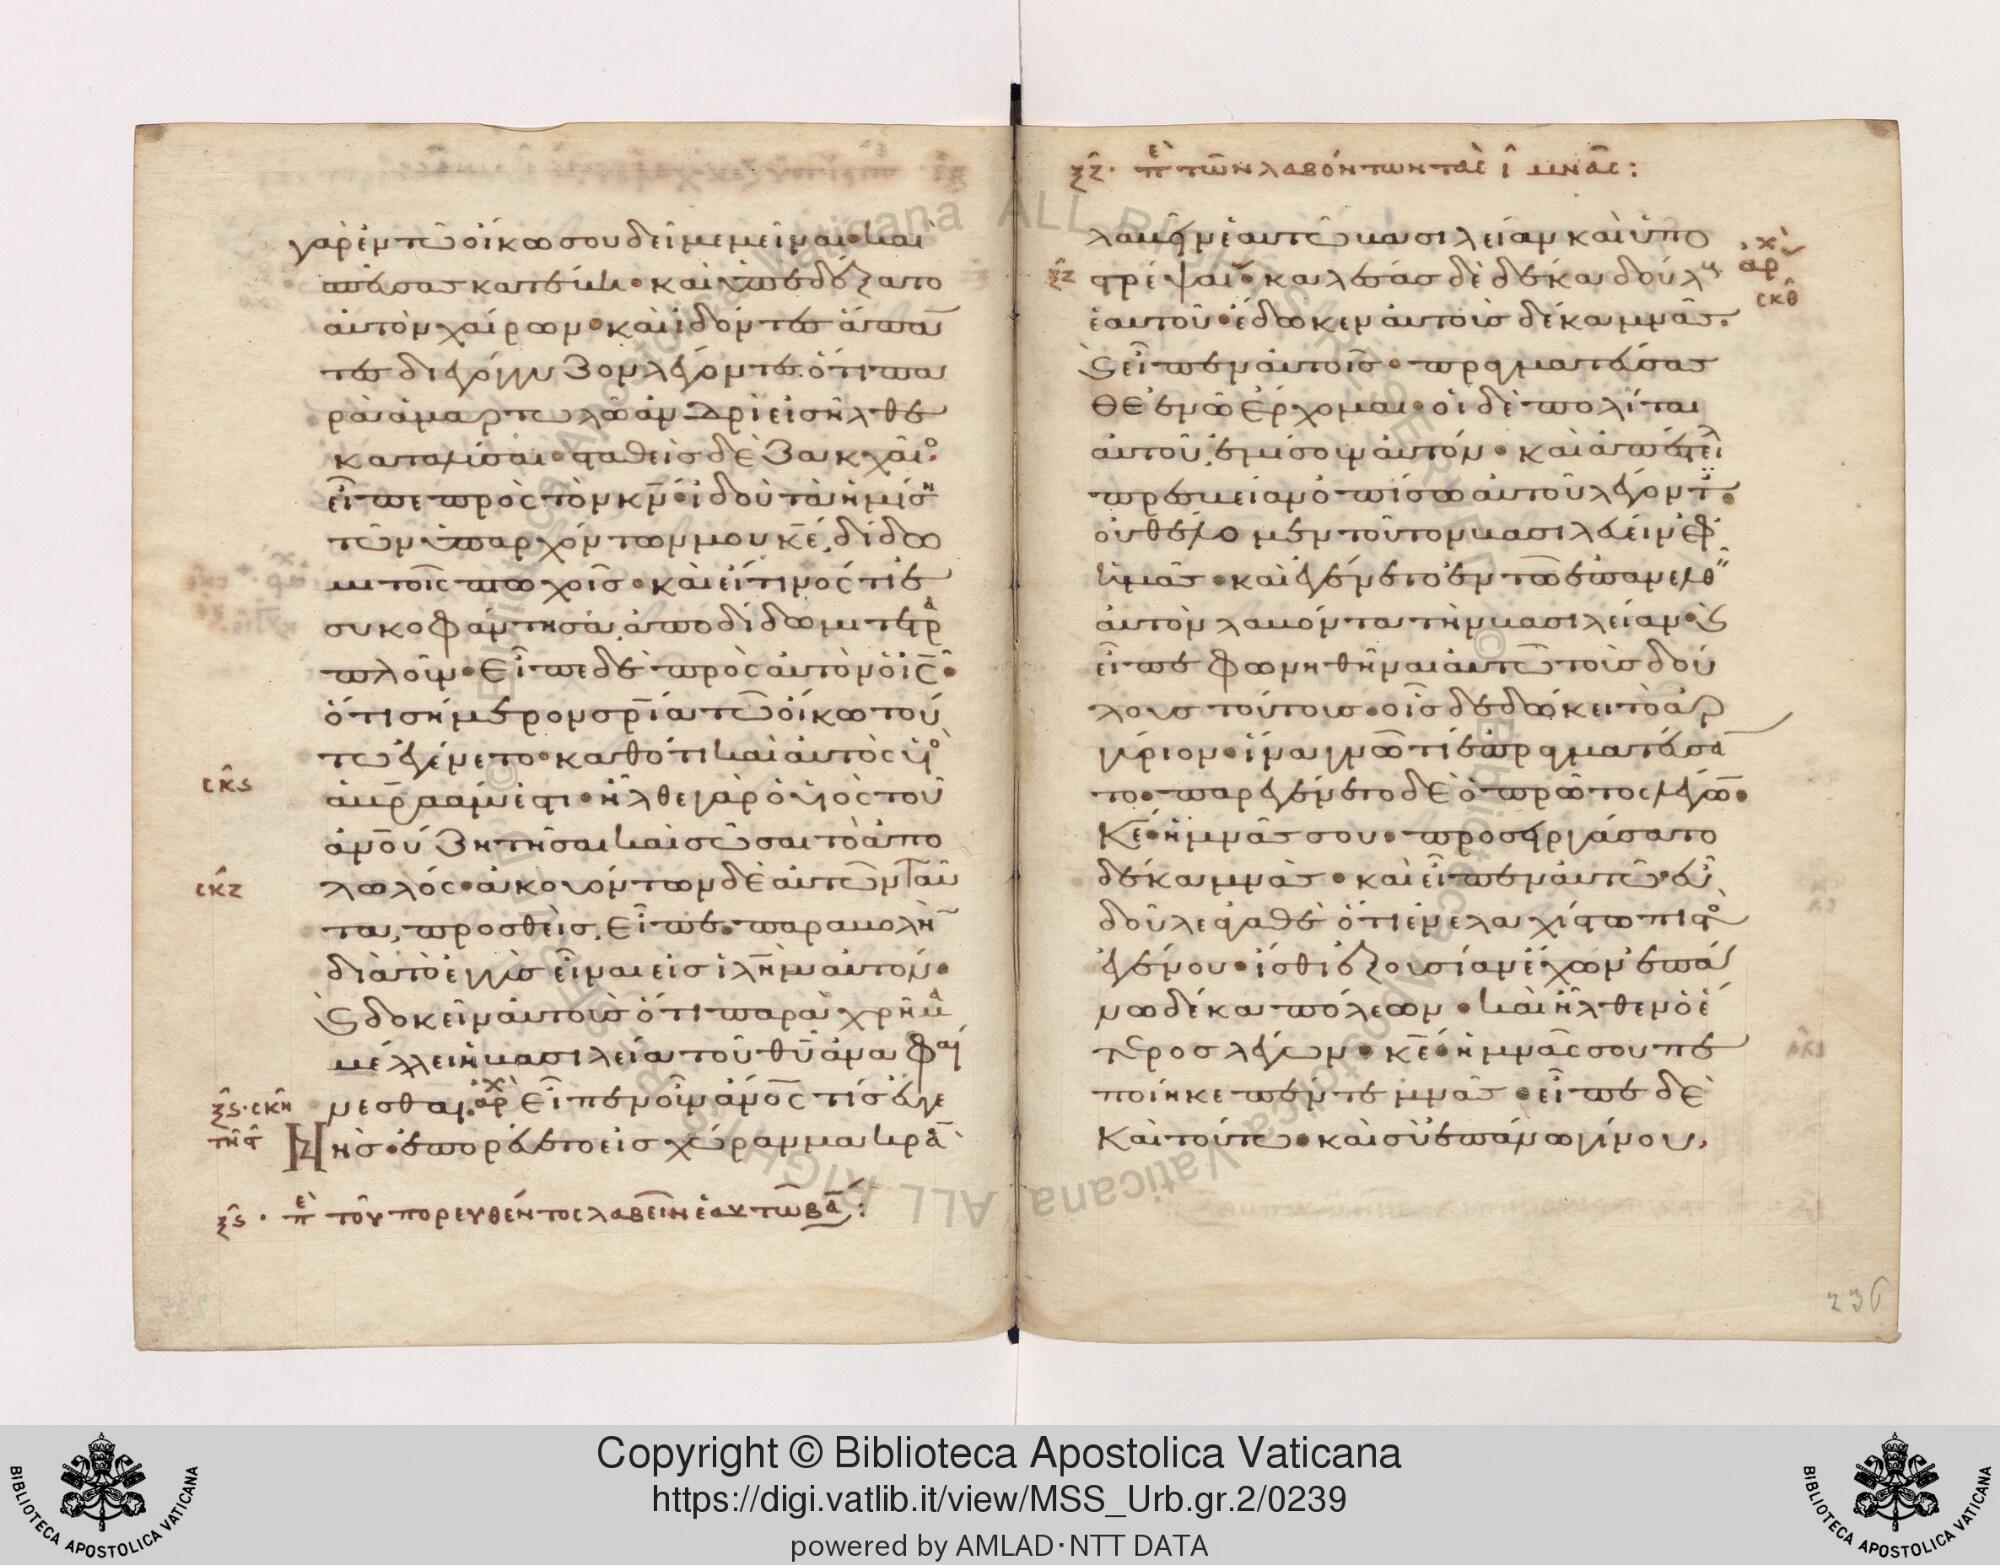 γὰρ ἐν τῷ οἴκῳ σου δεῖ με μεῖναι· καὶ
σπεύσας κατέβη· καὶ ὑπεδέξατο
αὐτὸν χαίρων· καὶ ἰδόντες ἅπαν
τες διεγόγγυζον λέγοντες· ὅτι πα
ρὰ ἁμαρτωλῷ ἀνδρὶ εἰσῆλθε
καταλῦσαι· σταθεὶς δὲ Ζακχαῖο
εἶπε πρὸς τὸν κν· ἰδοὺ τὰ ἡμίση
τῶν ὑπαρχόντων μου κε, δίδω
μι τοῖς πτωχοῖς· καὶ εἴ τινός τι ἐ
συκοφάντησα, ἀποδίδωμι τετρα
πλοῦν· Εἶπε δὲ πρὸς αὐτὸν ὁ ις·
ὅτι σήμερον σρία τῷ οἴκῳ τού
τῳ ἐγένετο· καθότι καὶ αὐτὸς υἱὸ
ἁβραάμ ἐστι· ἦλθε γὰρ ὁ υἱὸς τοῦ
ἀνου ζητῆσαι καὶ σῶσαι τὸ ἀπο
λωλός· ἀκουόντων δὲ αὐτῶν ταῦ
τα, προσθεὶς, εἶπε· παραβολὴν
διὰ τὸ ἐγγὺς εἶναι εἰς ιλημ αὐτόν·
ϛ δοκεῖν αὐτοὺς ὅτι παραχρῆμα
μέλλει ἡ βασιλεία τοῦ θυ ἀναφαί
νεσθαι. αρχ Εἶπεν οὖν ἀνος τὶς εὐγε
νὴς· ἐπορεύετο εἰς χώραν μακρὰ
σκς
σκζ
ξς· σκη
ξς· πε τοῦ πορευθέντος λαβεῖν ἑαυτῷ βα:
ξζ· πε τῶν λαβόντων τὰς ι μνᾶς:
λαβεῖν ἑαυτῷ βασιλείαν καὶ ὑπο
στρέψαι· καλέσας δὲ δέκα δούλους
ἑαυτοῦ· ἔδωκεν αὐτοῖς δέκα μνᾶς.
ϛ εἶπεν αὐτοῖς· πραγματεύσασ
θε ἐν ᾧ ἔρχομαι· οἱ δὲ πολίται
αὐτοῦ, ἐμίσουν αὐτόν· καὶ ἀπέστειλ
πρεσβείαν ὀπίσω αὐτοῦ λέγοντ·
οὐ θέλομεν τοῦτον βασιλεύειν ἐφ
ἡμᾶς· καὶ ἐγένετο ἐν τῷ ἐπανελθεῖν
αὐτὸν λαβόντα τὴν βασιλείαν· ϛ
εἶπε φωνηθῆναι αὐτῷ τοὺς δού
λους τούτους· οἷς δεδώκει τὸ ἀρ
γύριον· ἵνα γνῷ τίς τί ἐπραγματεύσα
το· παρεγένετο δὲ ὁ πρῶτος λέγω·
Κε· ἡ μνᾶς σου· προσειργάσατο
δέκα μνᾶς· καὶ εἶπεν αὐτῷ· εὖ
δοῦλε ἀγαθέ ὅτι ἐν ἐλαχίστῳ πιστὸ
ἐγένου· ἴσθι ἐξουσίαν ἔχων ἐπά
νω δέκα πόλεων· καὶ ἦλθεν ὁ ἕ
τερος λέγων· κε· ἡ μνᾶς σου πε
ποίηκε πέντε μνᾶς· εἶπε δὲ
καὶ τούτῳ· καὶ σὺ ἐπάνω γίνου,
ξζ
αρχ
σκθ
236
Copyright © Biblioteca Apostolica Vaticana
https://digi.vatlib.it/view/MSS_Urb.gr.2/0239
powered by AMLAD·NTT DATA
BIBLIOTECA APOSTOLICA VATICANA
BIBLIOTECA APOSTOLICA VATICANA